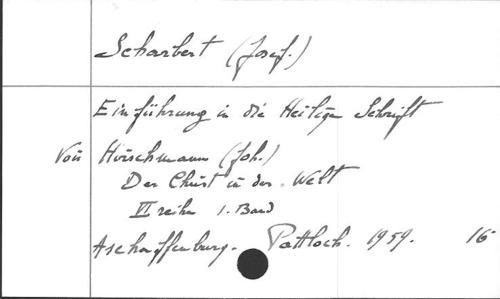 Scharbert (Josef.)
Einführung in die Heilige Schrift
Voir Hirschmann (Joh.)
Der Christ in der Welt
VI reihe 1. Band
Aschaffenburg. Pattloch. 1959. 16